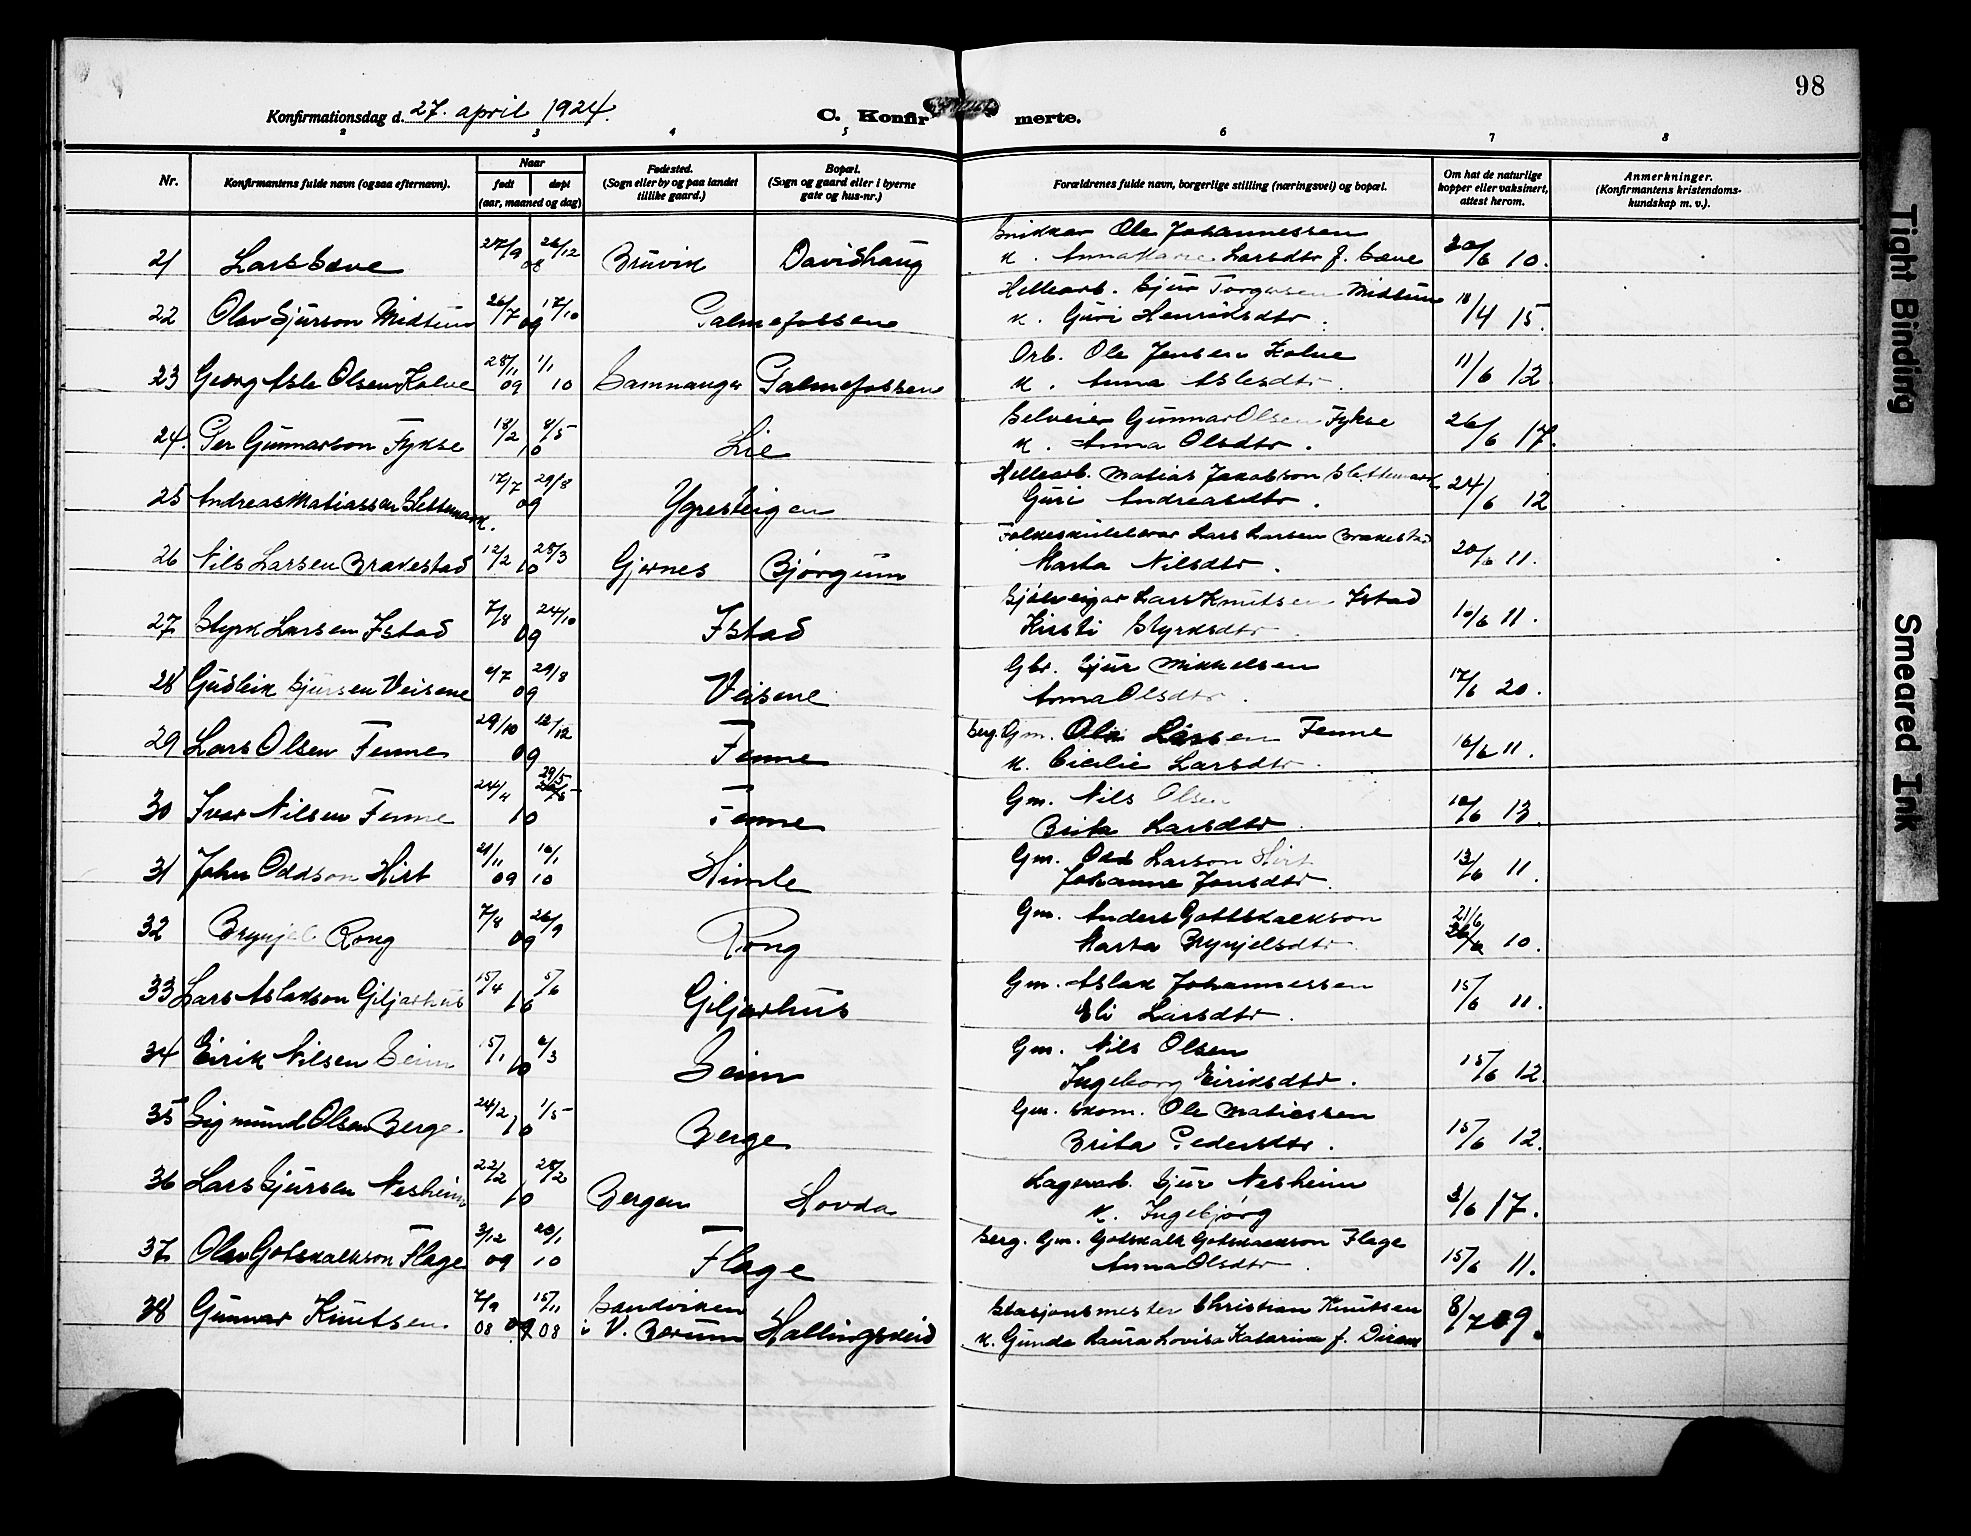 98
Konfirmationsdag d. 27. april 1924. C. Konfirmerte.
2 3 4 5 6 7 8
Nr. Konfirmantens fulde navn (ogsaa efternavn). Naar født døpt (aar, maaned og dag) Fødested. (Sogn eller by og paa landet tillike gaard.) Bopæl. (Sogn og gaard eller i byerne gate og hus-nr.) Forældrenes fulde navn, borgerlige stilling (næringsvei) og bopæl. Om hat de naturlige kopper eller vaksinert, attest herom. Anmerkninger. (Konfirmantens kristendoms-kundskap m. v.).
Snikkar Ole Johannessen
21 Lars Sæve 27/9 26/12 08 Bruvik Davidhaug k. Anna Marie Larsdtr f. Sæve 20/6 10.
Hellearb. Sjur Torgersen Midtun
22 Olav Sjurson Midtun 26/7 17/10 09 Palmefossen k. Guri Henriksdtr. 18/4 15.
Arb. Ole Jensen Kolve
23 Georg Asle Olsen Kolve 28/11 09 1/1 10 Samnanger Palmefossen k. Anna Aslesdtr. 11/6 12
Selveier Gunnar Olsen Fykse
24. Per Gunnarson Fykse 18/2 8/5 10 Lie k. Anna Olsdtr. 26/6 17.
Hellearb. Matias Jakobson Slettemark
25 Andreas Matiassen Slettemark. 17/7 29/8 09 Ygresteigen Guri Andreasdtr. 24/6 12
Lars Larsen Brakestad
26 Nils Larsen Brakestad 12/2 28/3 10 Gjernes Bjørgum Marta Nilsdtr. 20/6 11.
Sjølveigar Lars Knutsen Istad
27 Styrk Larsen Istad 7/8 24/10 09 Istad Kristi Styrksdtr. 10/6 11.
Gbr. Sjur Mikkelsen
28 Gudleik Sjursen Veisene 4/7 29/8 09 Veisene Anna Olsdtr. 17/6 20.
Berg. Gm. Ole Larsen Fenne
29 Lars Olsen Fenne 29/10 12/12 09 Fenne k. Cicilie Larsdtr. 16/6 11.
Gm. Nils Olsen
30 Ivar Nilsen Fenne 24/4 29/5 10 Fenne Brita Larsdtr. 10/6 13.
Gm. Odd Larson Hirt
31 John Oddson Hirt 21/11 09 16/1 10 Himle Johanne Jonsdtr. 13/6 11.
Gm. Anders Gottskalkson
32 Brynjel Rong 7/8 26/9 09 Rong Marta Brynjelsdtr. 21/6 10.
Gm. Aslak Johannessen
33 Lars Aslakson Giljarhus 15/4 5/6 10 Giljarhus Eli Larsdtr. 15/6 11.
Gm. Nils Olsen
34 Eirik Nilsen Seim 15/1 6/3 10 Seim Ingeborg Eiriksdtr. 15/6 12.
Gm. skom. Ole Matiessen
35 Sigmund Olsen Berge. 24/2 1/5 10 Berge Brita Pedersdtr. 15/6 12.
Lagerarb. Sjur Nesheim
36 Lars Sjursen Nesheim 22/2 28/2 10 Bergen Hovda k. Ingebjørg 3/6 17.
Berg. Gm. Gotskalk Gotskalkson Flage
37 Olav Gotskalkson Flage 3/12 09 20/1 10 Flage Anna Olsdtr. 15/6 11.
Stasjonsmester Christian Knutsen
38 Gunnar Knutsen. 7/9 08 15/11 08 Sandviken i V. Bærum Hallingskeid k. Gunda Laura Lovisa Katarina f. 8/7 09.
Tight Binding
Smeared Ink